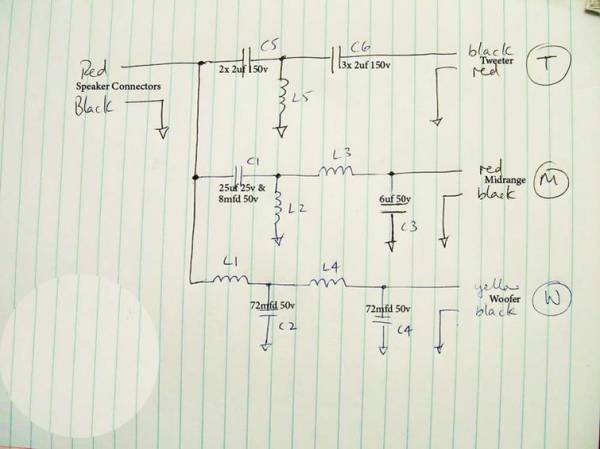 C5
C6
black
Red
2x 2uf 150v
3x 2uf 150v
Tweeter
T
red
Speaker Connectors
Black
L5
C1
L3
red
25uf 25v &
8mfd 50v
6uf 50v
Midrange
M
L2
black
C3
L1
L4
yellow
72mfd 50v
72mfd 50v
Woofer
W
C2
C4
black